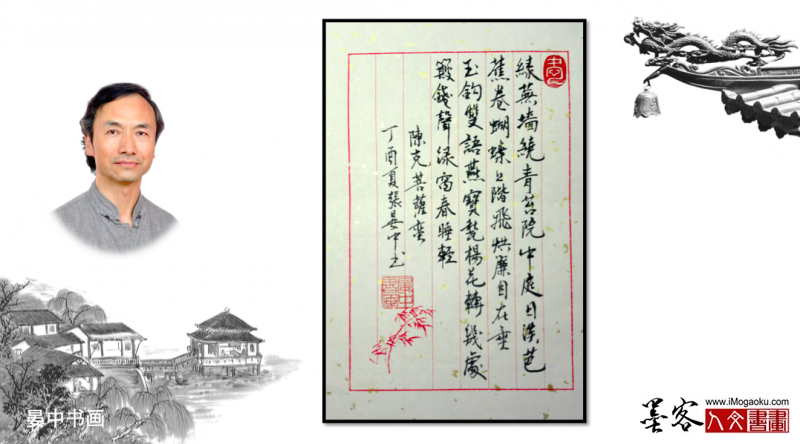 綠蕪墻繞青苔院中庭日淡芭
蕉卷蝴蝶上階飛烘簾自在垂
玉鈎雙語燕寶甃楊花轉幾處
簸錢聲綠窗春睡輕
陳克菩薩蛮
丁酉夏張晏中书
晏中書畫
晏中书画
墨客
www.iMogaoku.com
人文書畫